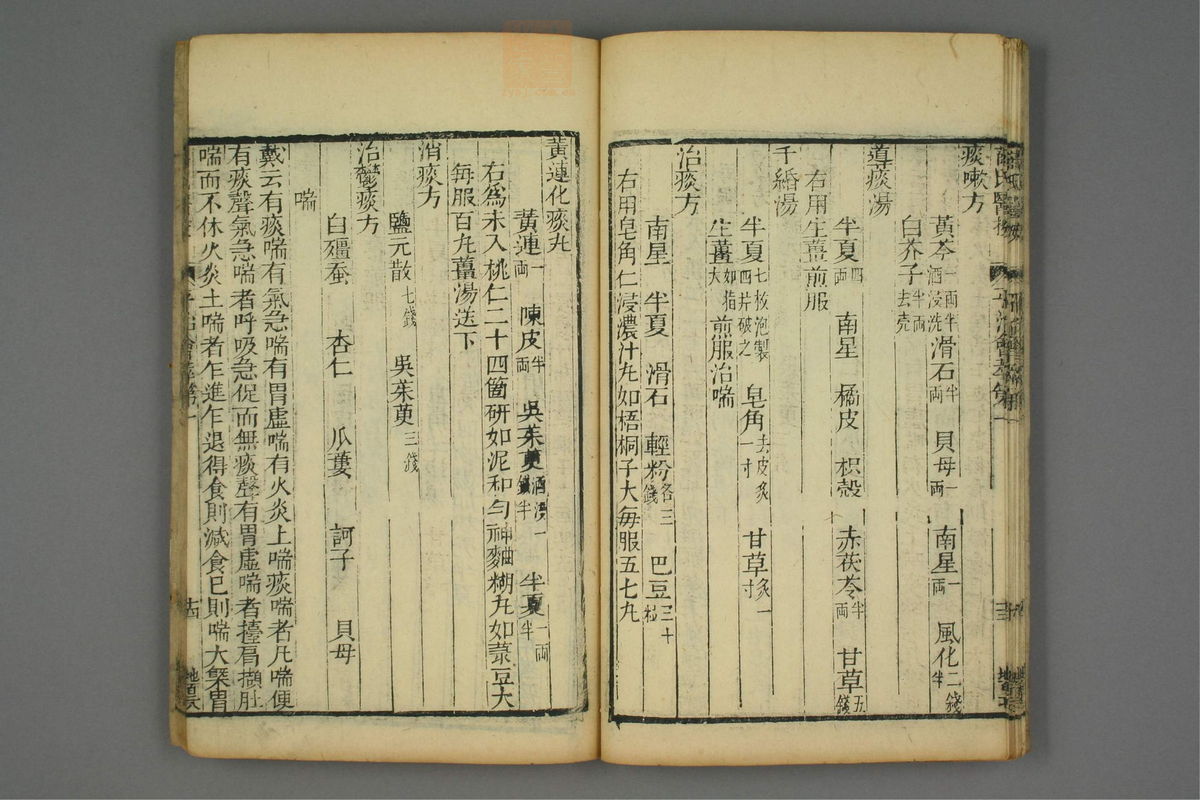 薛氏醫按
痰嗽方
黃芩一兩半酒浸洗 滑石半兩 貝母一兩 南星一兩 風化二錢半
白芥子半兩去壳
導痰湯
半夏四兩 南星 橘皮 枳殼 赤茯苓半兩 甘草五錢
右用生薑煎服
千緡湯
半夏七枚泡製四片破之 皂角去皮炙一寸 甘草炙一寸
生薑如指大 煎服治喘
治痰方
南星 半夏 滑石 輕粉各三錢 巴豆三十粒
右用皂角仁浸濃汁丸如梧桐子大每服五七丸
黃連化痰丸
黃連一兩 陳皮半兩 吳茱萸酒浸一錢半 半夏一兩半
右為末入桃仁二十四箇研如泥和勻神麯糊丸如菉豆大
每服百丸薑湯送下
消痰方
鹽元散七錢 吳茱萸三錢
治鬱痰方
白殭蚕 杏仁 瓜蔞 訶子 貝母
喘
戴云有痰喘有氣急喘有胃虛喘有火炎上喘痰喘者凡喘便
有痰聲氣急喘者呼吸急促而無痰聲有胃虛喘者擡肩擷肚
喘而不休火炎上喘者乍進乍退得食則減食已則喘大槩胃